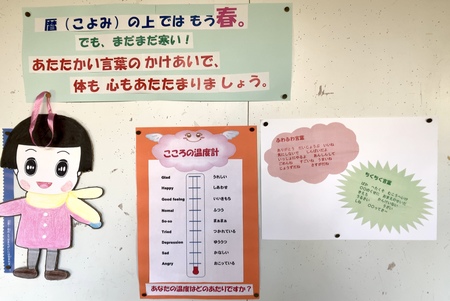 暦（こよみ）の上では もう 春。
でも、まだまだ寒い！
あたたかい言葉の かけあいで、
体も 心もあたたまりましょう。
こころの温度計
Glad うれしい
Happy しあわせ
Good feeling いいきもち
Normal ふつう
So-so まぁまぁ
Tried つかれている
Depression ゆううつ
Sad かなしい
Angry おこっている
あなたの温度はどのあたりですか？
ふわふわ言葉
ありがとう だいじょうぶ いいね
ちくちく言葉